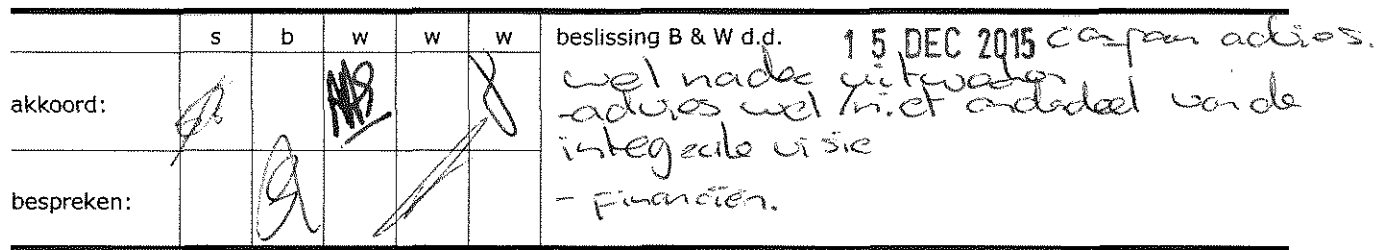 s b w w w beslissing B & W d.d. 15 DEC 2015 conform advies.
wel nader uitwerken
akkoord: -advies wel/niet onderdeel van de
integrale visie
bespreken: - Financiën.